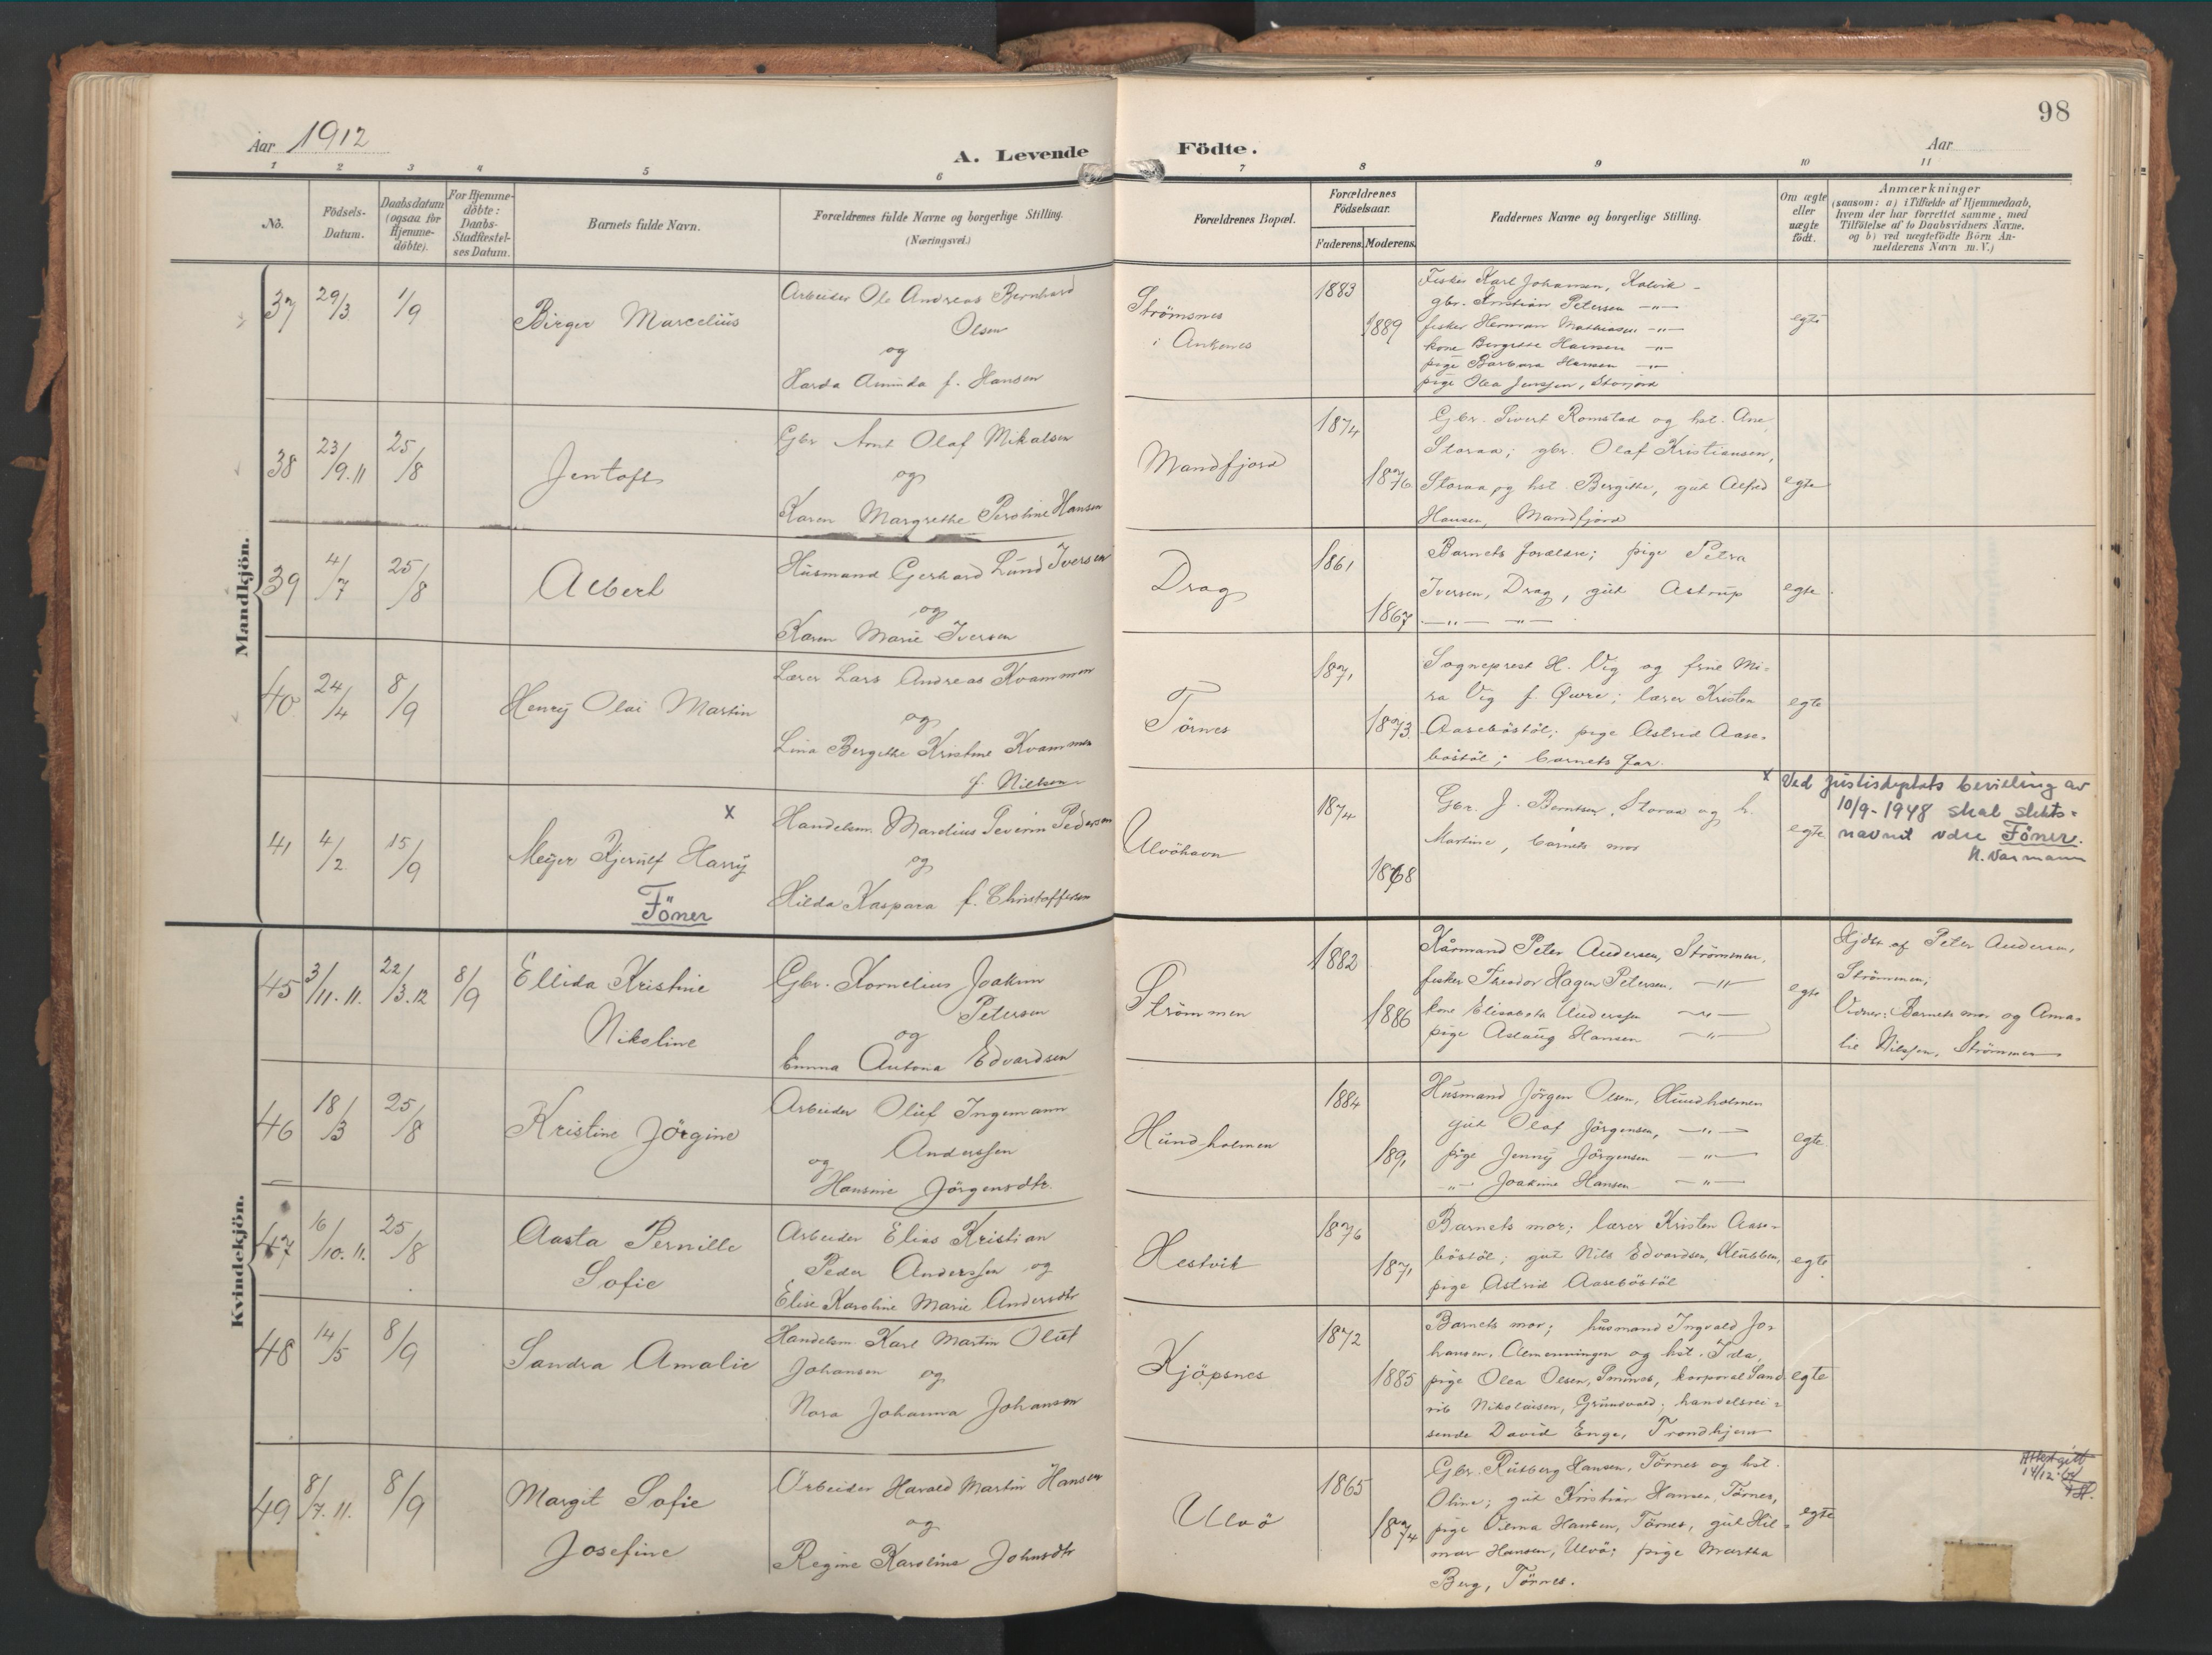 98
Aar 1912
A. Levende Födte.
Aar
1 2 3 4 5 6 7 8 9 10 11
No.
Födsels-
Datum.
Daabsdatum
(ogsaa for
Hjemme-
döbte).
For Hjemme-
döbte:
Daabs-
Stadfæstel-
ses Datum.
Barnets fulde Navn.
Forældrenes fulde Navne og borgerlige Stilling.
(Næringsvei.)
Forældrenes Bopæl.
Forældrenes
Födselsaar.
Faderens. Moderens.
Faddernes Navne og borgerlige Stilling.
Om ægte
eller
uægte
født.
Anmærkninger
(saasom: a) i Tilfælde af Hjemmedaab,
hvem der har forrettet samme, med
Tilföielse af to Daabsvidners Navne,
og b) ved uægtefödte Börn An-
melderens Navn m. V.)
Mandkjön.
37 29/3 1/9
Birger Marcelius
Arbeider Ole Andreas Bernhard
Olsen
og
Harda Aminda f. Hansen
Strömsnes
i Ankenes
1883
1889
Fisker Karl Johansen, Kalvik -
gbr. Kristian Petersen -"-
fisker Herman Mathiasen -"-
kone Bergitte Hansen -"-
pige Barbara Hansen -"-
pige Olea Jenssen, Storjord
egte
38 23/9.11 25/8
Jentoft
Gbr Arnt Olaf Mikalsen
og
Karen Margrethe Peroline Hansen
Mandfjord
1874
1876
Gbr. Sivert Romstad og hst. Ane,
Storaa; gbr. Olaf Kristiansen,
Storaa og hst Bergitte, gut Alfred
Hansen, Mandfjord
egte
39 4/7 25/8
Albert
Husmand Gerhard Lund Iversen
og
Karen Marie Iversen
Drag
1861
1867
Barnets forældre; pige Petra
Iversen, Drag, gut Astrup
-"- -"-
egte
40 24/4 8/9
Henry Olai Martin
Lærer Lars Andreas Kvammen
og
Lina Bergitte Kristine Kvammen
f. Nielsen
Törnes
1871
1873
Sogneprest H. Vig og frue Mi-
ra Vig f. Øwre; lærer Kristen
Aaseböstöl; pige Astrid Aase-
böstöl; barnets far.
egte
41 4/2 15/9
x
Meyer Kjerulf Harry
Föner
Handelsm. Mardius Severin Pedersen
og
Hilda Kaspara f. Christoffersen
Ulvöhavn
1874
1868
Gbr. J. Berntsen, Storaa og h.
Martine, barnets mor
egte
x Ved Justisdeptets bevilling av
10/9-1948 skal slekts-
navnet være Föner.
N. Varmann
Kvindekjön.
45 3/11.11. 22/3.12 8/9
Ellida Kristine
Nikoline
Gbr. Kornelius Joakim
Petersen
og
Emma Antona Edvardsen
Strömmen
1882
1886
Kårmand Peter Andersen, Strömmen,
fisker Theodor Hagen Petersen, -"-
kone Elisabeth Anderssen -"-
pige Aslaug Hansen -"-
egte
Hjdbt af Peter Andersen,
Strömmen,
Vidner: Barnets mor og Ama-
lie Nilssen, Strömmen
46 18/3 25/8
Kristine Jörgine
Arbeider Oluf Ingemann
Anderssen
og
Hansine Jörgensdtr.
Hundholmen
1884
1891
Husmand Jörgen Olsen, Hundholmen
gut Olaf Jörgensen, -"-
pige Jenny Jörgensen -"-
-"- Joakime Hansen -"-
egte.
47 16/10.11. 25/8
Aasta Pernille
Sofie
Arbeider Elias Kristian
Peder Anderssen og
Elise Karoline Marie Andersdtr
Hestvik
1876
1871
Barnets mor; lærer Kristen Aase-
böstöl; gut Nils Edvardsen, Klubben,
pige Astrid Aaseböstöl
egte
48 14/5 8/9
Sandra Amalie
Handelsm. Karl Martin Oluf
Johansen og
Nora Johanna Johansen
Kjöpsnes
1872
1885
Barnets mor; husmand Ingvald Jo-
hansen, Almenningen og hst. Ida,
pige Olea Olsen, Smines, korporal Sand
rib Nikolaisen, Grunsvald; handelsrei-
sende David Enge, Trondhjem
egte
49 8/7.11. 8/9
Margit Sofie
Josefine
Arbeider Harald Martin Hansen
og
Regine Karoline Johnsdtr
Ulvö
1865
1874
Gbr. Rutberg Hansen, Törnes og hst.
Oline; gut Kristian Hansen, Törnes,
pige Vilma Hansen, Törnes, gut Hil-
mar Hansen, Ulvö; pige Martha
Berg, Törnes.
egte
Attest gitt
14/12